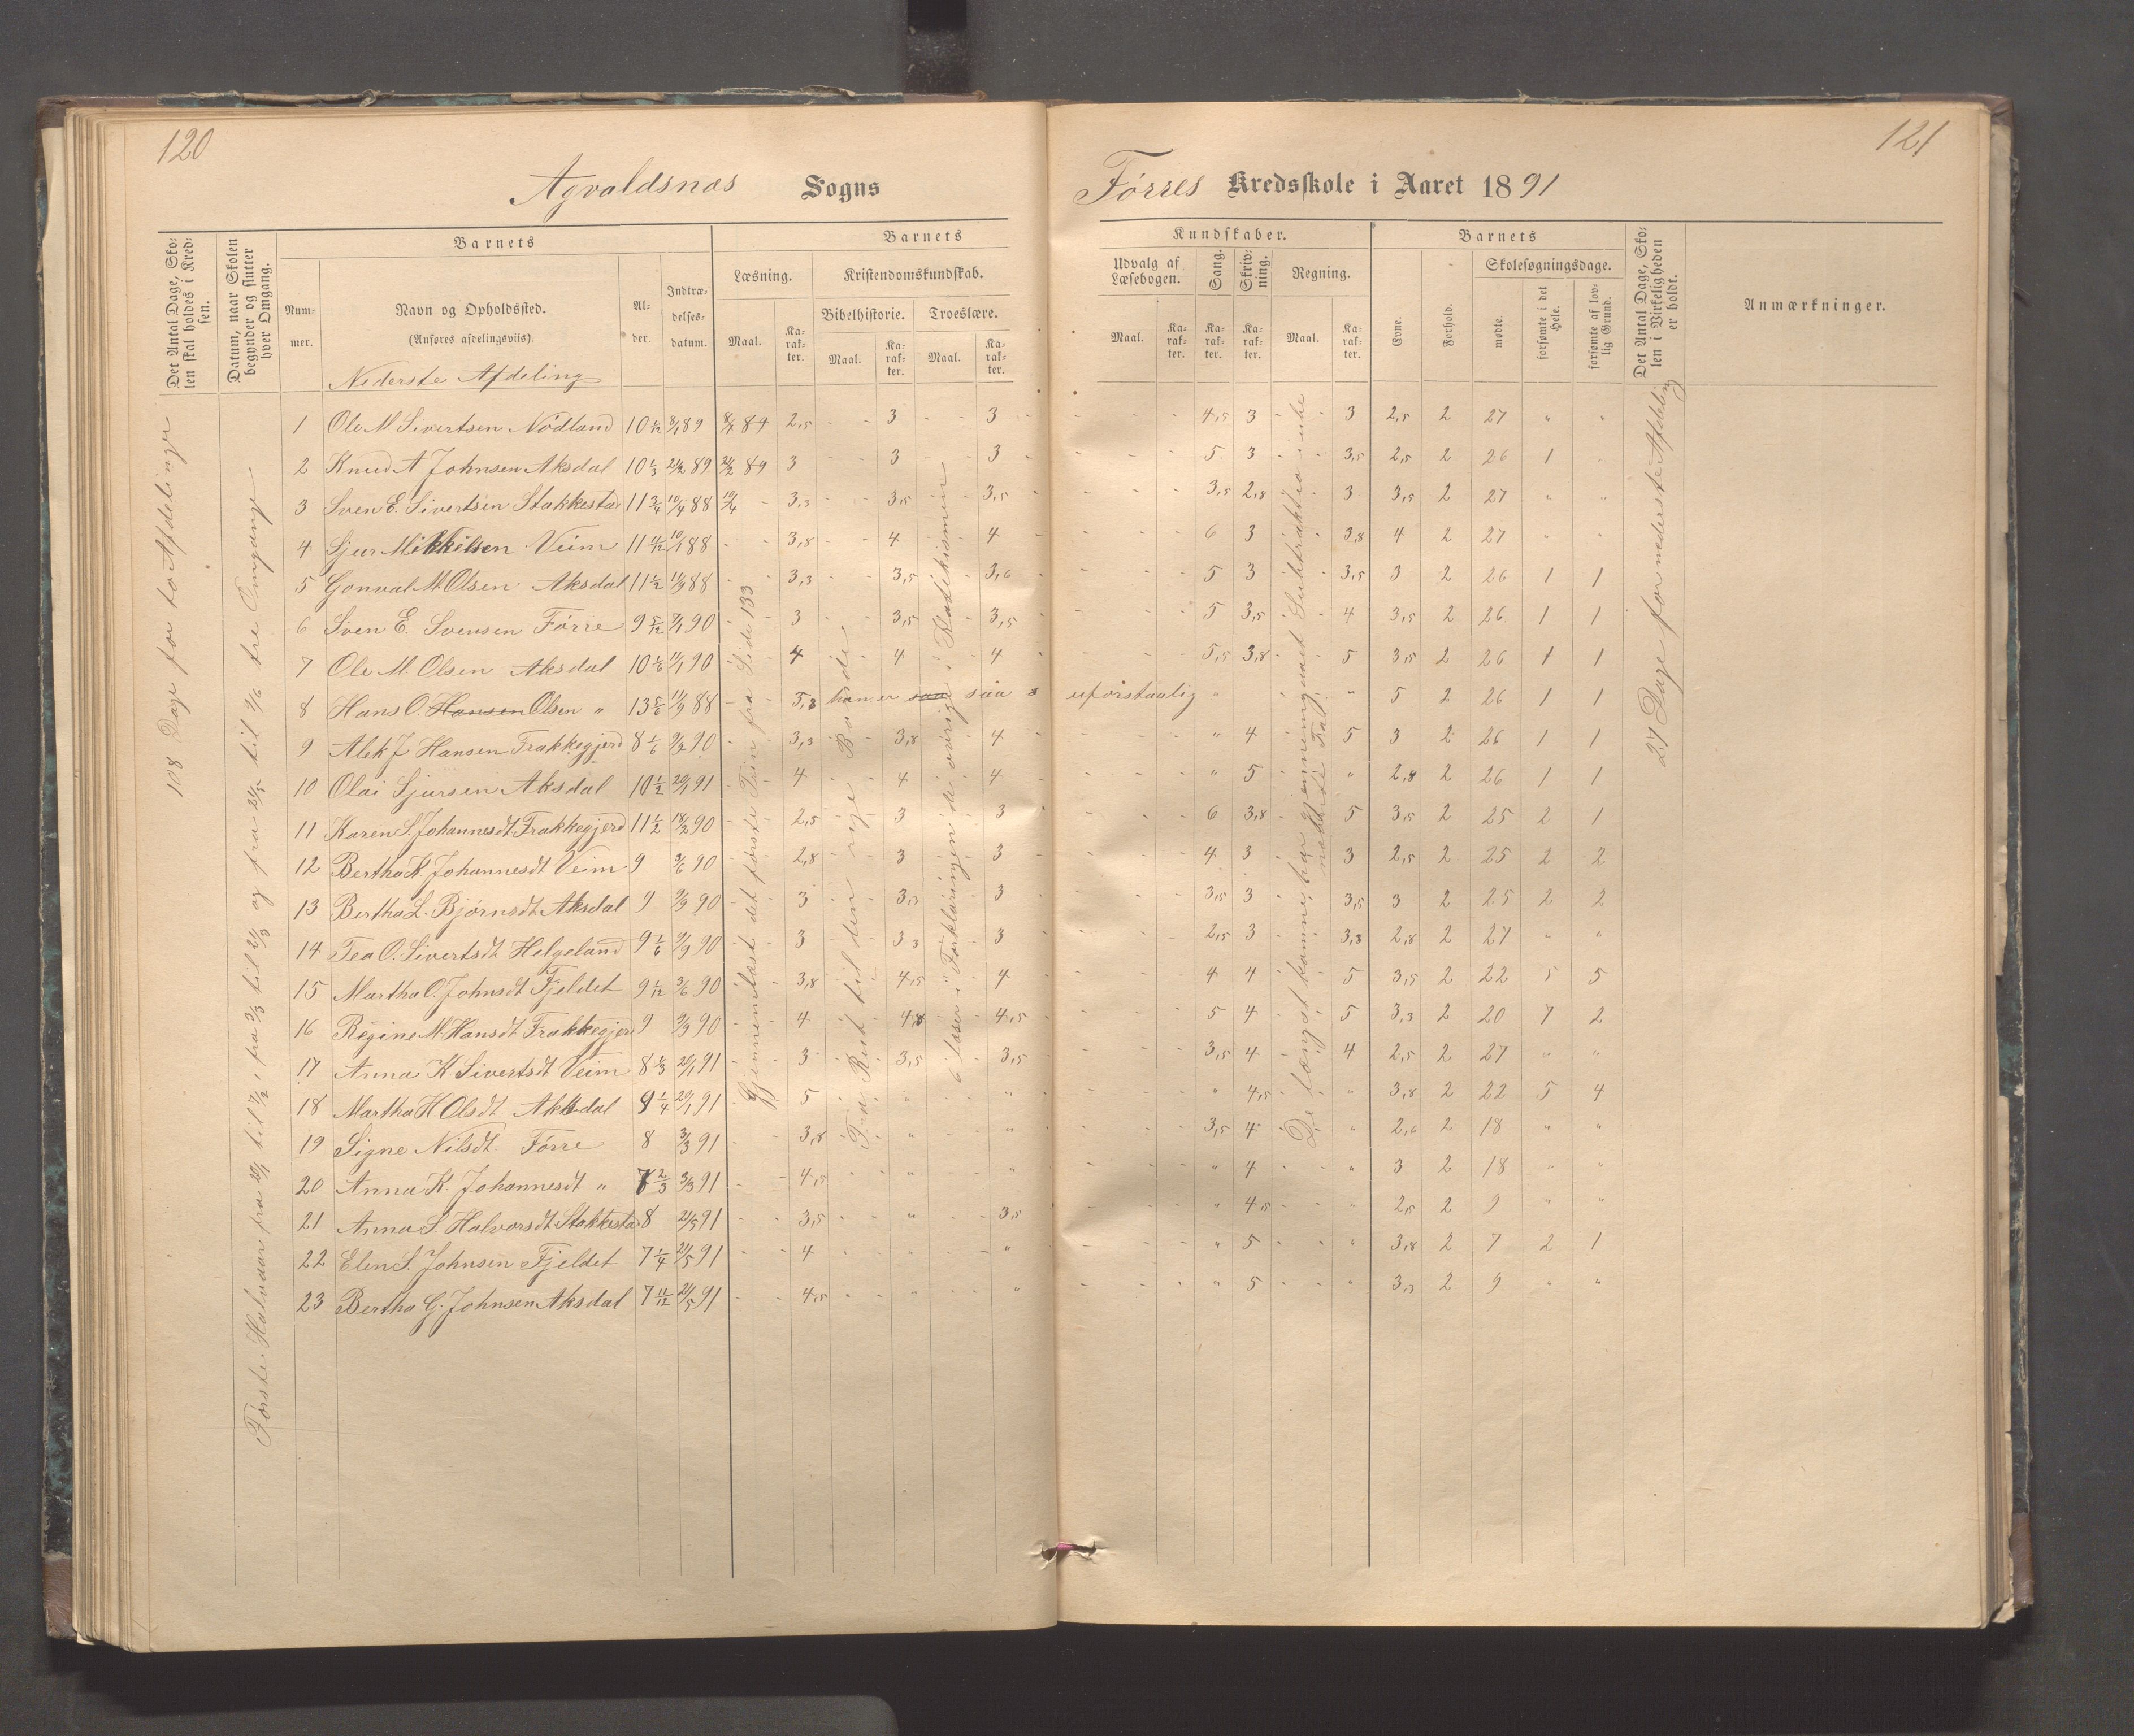 120
Agvaldsnæs Sogns
Det Antal Dage, Sko-
len skal holdes i Kred-
sen.
Datum, naar Skolen
begynder og slutter
hver Omgang.
Barnets
Num-
mer.
Navn og Opholdssted.
(Anføres afdelingsviis).
Al-
der.
Indtræ-
delses-
datum.
Barnets
Læsning.
Maal.
Ka-
rak-
ter.
Kristendomskundskab.
Bibelhistorie.
Troeslære.
Maal.
Ka-
rak-
ter.
Maal.
Ka-
rak-
ter.
Nederste Afdeling
108 Dage for to Afdelinger
Første Halvaar fra 20/1 til 7/2, fra 3/3 til 21/3 og fra 21/5 til 9/6 tre Omgange
Gjennemlæst det første Trin fra Side 133
Fra Rut til den rige Bonde
6 læser i Forklaringen de øvrige i Katekismen
1 Ole M. Sivertsen Nødland 10 1/12 8/1 89 8/1 89 2,5 3 3
2 Knud A Johnsen Aksdal 10 1/3 21/2 89 21/2 89 3 3 3
3 Sven E. Sivertsen Stakkestad 11 3/4 10/4 88 10/4 3,3 3,5 3,5
4 Sjur Mikkelsen Veim 11 4/12 10/1 88 3,8 4 4
5 Gonval M. Olsen Aksdal 11 1/2 11/9 88 3,3 3,5 3,6
6 Sven E. Svensen Førre 9 5/12 7/1 90 3 3,5 3,5
7 Ole M. Olsen Aksdal 10 1/6 11/1 90 4 4 4
8 Hans O Hansen Olsen " 13 5/6 11/9 88 5,8 han er saa saa
9 Alek J Hansen Frakkegjerd 8 1/6 9/2 90 3,3 3,8 4
10 Olai Sjursen Aksdal 10 1/2 20/1 91 4 4 4
11 Karen S. Johannesdt. Frakkegjerd 11 1/2 18/2 90 2,5 3 3
12 Bertha K. Johannesdt Veim 9 3/6 90 2,8 3 3
13 Bertha L. Bjørnsdt Aksdal 9 9/9 90 3 3,3 3
14 Tea O. Sivertsdt Helgeland 9 1/6 9/9 90 3 3 3 3
15 Martha O. Johnsdt Fjeldet 9 1/12 3/6 90 3,8 4,5 4
16 Regine M. Hansdt Frakkegjerd 9 9/9 90 4 4,8 4,5
17 Anna K. Sivertsdt Veim 8 1/3 20/1 91 3 3,5 3,5
18 Martha H. Olsdt. Aksdal 9 1/4 20/1 91 5 " "
19 Signe Nilsdt. Førre 8 3/3 91 3,8 " "
20 Anna K. Johannesdt " 7 2/3 3/3 91 4,5 " "
21 Anna S. Halvorsdt Stakkestad 8 21/5 91 3,5 " 3,5
22 Elen S. Johnsen Fjeldet 7 1/4 21/5 91 4 " "
23 Bertha G. Johnsen Aksdal 7 11/12 21/5 91 4,5 " "
121
Førres Kredsskole i Aaret 1891
Kundskaber.
Udvalg af
Læsebogen.
Maal.
Ka-
rak-
ter.
Sang.
Ka-
rak-
ter.
Skriv-
ning.
Ka-
rak-
ter.
Regning.
Maal.
Ka-
rak-
ter.
Barnets
Evne.
Forhold.
Skolesøgningsdage.
mødte.
forsømte i det
Hele.
forsømte af lov-
lig Grund.
Det Antal Dage, Sko-
len i Virkeligheden
er holdt.
Anmærkninger.
De længst komne har gjennemgaaet Subtraktion
27 Dage for nederste Afdeling
4,5 3 3 2,5 2 27 " "
5 3 3,5 2,5 2 26 1 "
3,5 2,8 3 3,5 2 27 " "
6 3 3,8 4 2 27 " "
5 3 3,5 3 2 26 1 1
5 3,5 4 3,5 2 26 1 1
5,5 3,8 5 3,5 2 26 1 1
uforstaalig " " 5 2 26 1 1
" 4 5 3 2 26 1 1
" 5 " 2,8 2 26 1 1
6 3,8 5 3,5 2 25 2 1
4 3 3 2,5 2 25 2 2
3,5 3 3,5 3 2 25 2 2
2,5 3 3,3 2,8 2 27 " "
4 4 5 3,5 2 22 5 5
5 4 5 3,3 2 20 7 2
3,5 4 4 2,5 2 27 " "
" 4,5 " 3,8 2 22 5 4
3,5 4 " 2,6 2 18 " "
" 4 " 3 2 18 " "
" 4,5 " 2,5 2 9 " "
" 5 " 3,8 2 7 2 1
" 5 " 3,3 2 9 " "